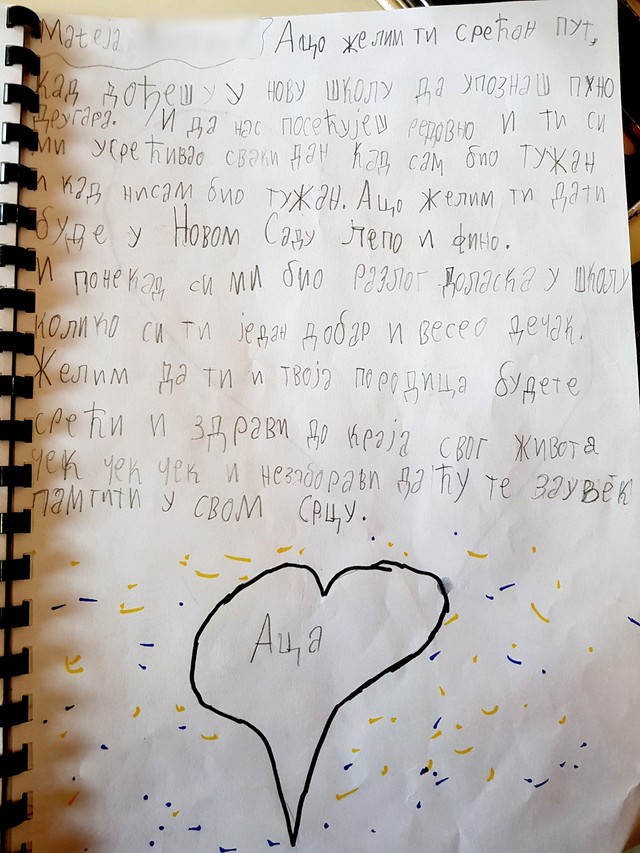 Mateja
Ацо желим ти срећан пут,
Кад дођеш у у нову школу да упознаш пуно
другара. И да нас посећујеш редовно и ти си
ми усрећивао сваки дан кад сам био тужан
и кад нисам био тужан. Ацо желим ти дати
буде у Новом Саду лепо и фино.
И понекад си ми био разлог доласка у школу
колико си ти један добар и весео дечак.
Желим да ти и твоја породица будете
срећи и здрави до краја свог живота
чек чек чек и незаборави да ћу те заувек
памтити у свом срцу.
Аца